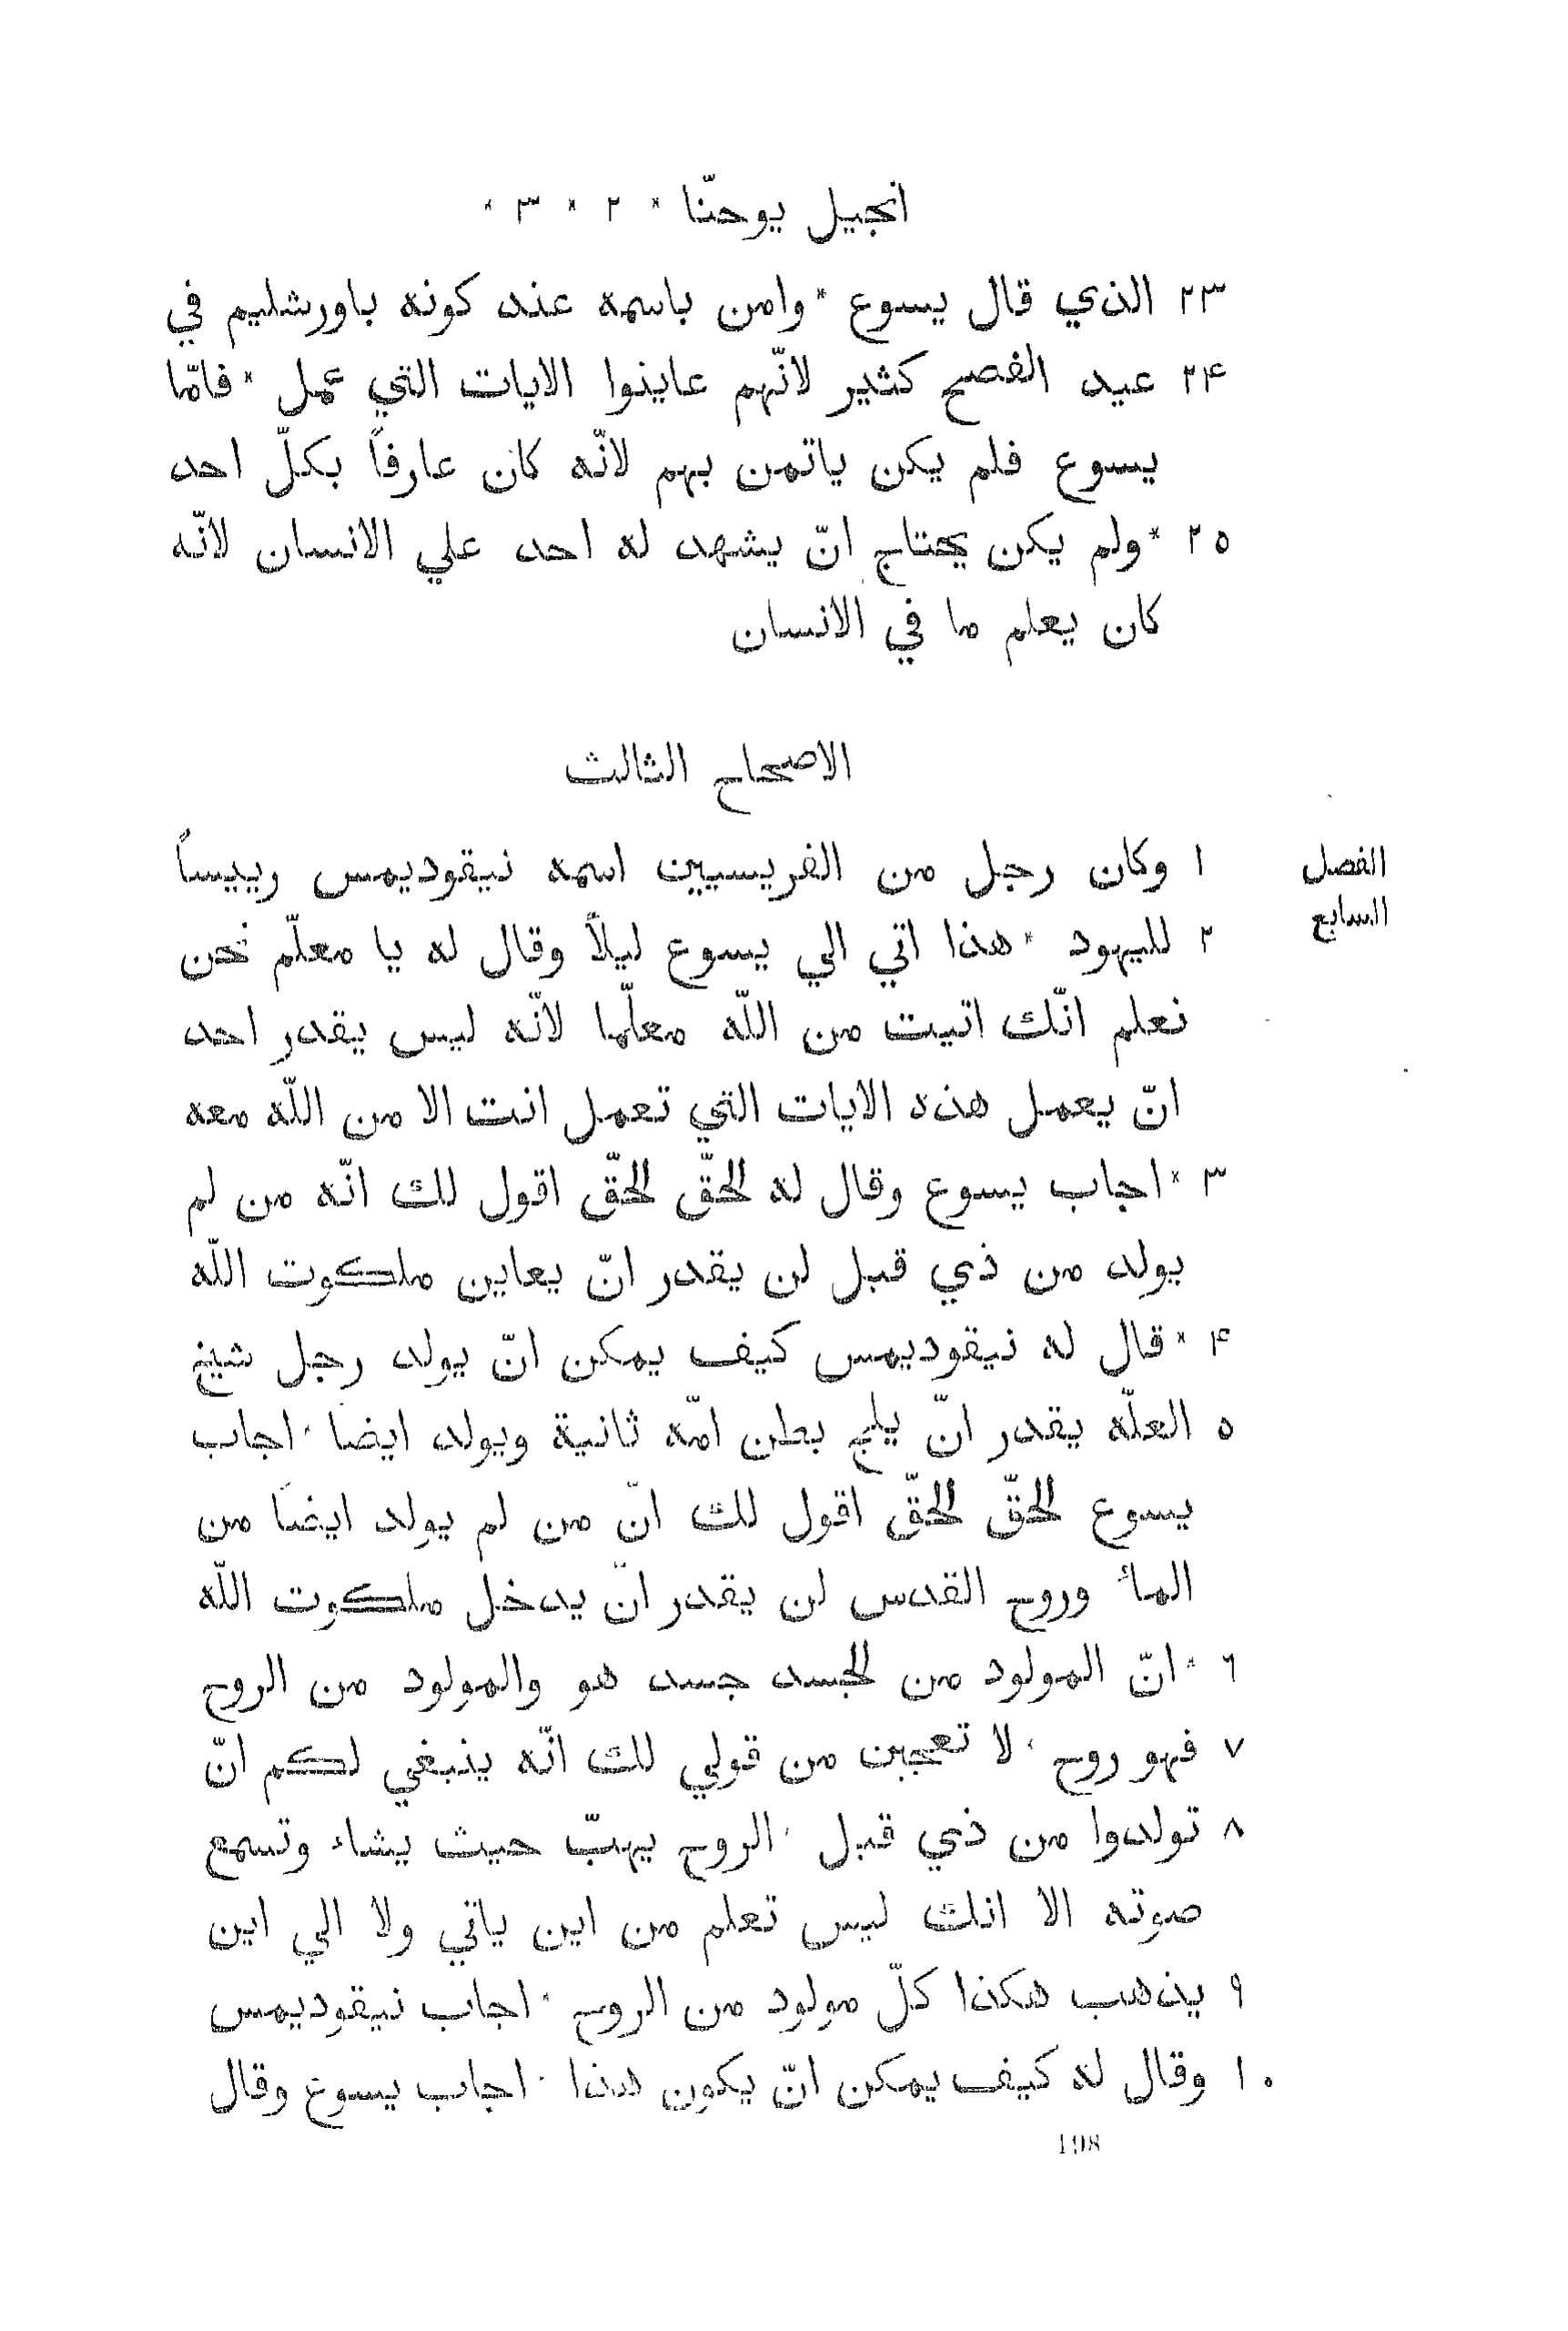 انجيل يوحنّا * ٢ * ٣ *
٢٣ الذي قال يسوع * وامن باسمه عند كونه باورشليم في
٢۴ عيد الفصح كثير لانّهم عاينوا الايات التي عمل * فامّا
يسوع فلم يكن ياتمن بهم لانّه كان عارفاً بكلّ احد
٢٥ * ولم يكن يحتاج انّ يشهد له احد علي الانسان لانّه
كان يعلم ما في الانسان
الاصحاح الثالث
الفصل
السابع
١ وكان رجل من الفريسيين اسمه نيقوديمس ريبيساً
٢ لليهود * هذا اتي الي يسوع ليلاً وقال له يا معلّم نحن
نعلم انّك اتيت من اللّه معلّما لانّه ليس يقدر احد
انّ يعمل هذه الايات التي تعمل انت الا من اللّه معه
٣ * اجاب يسوع وقال له الحقّ الحقّ اقول لك انّه من لم
يولد من ذي قبل لن يقدر انّ يعاين ملكوت اللّه
۴ * قال له نيقوديمس كيف يمكن انّ يولد رجل شيخ
٥ العلّه يقدر انّ يلج بطن امّه ثانية ويولد ايضا * اجاب
يسوع الحقّ الحقّ اقول لك انّ من لم يولد ايضا من
المأ وروح القدس لن يقدر انّ يدخل ملكوت اللّه
٦ * انّ المولود من الجسد جسد هو والمولود من الروح
٧ فهو روح * لا تعجبن من قولي لك انّه ينبغي لكم انّ
٨ تولدوا من ذي قبل * الروح يهبّ حيث يشاء وتسمع
صوته الا انك ليس تعلم من اين ياتي ولا الي اين
٩ يذهب هكذا كلّ مولود من الروح * اجاب نيقوديمس
١٠ وقال له كيف يمكن انّ يكون هذا * اجاب يسوع وقال
198